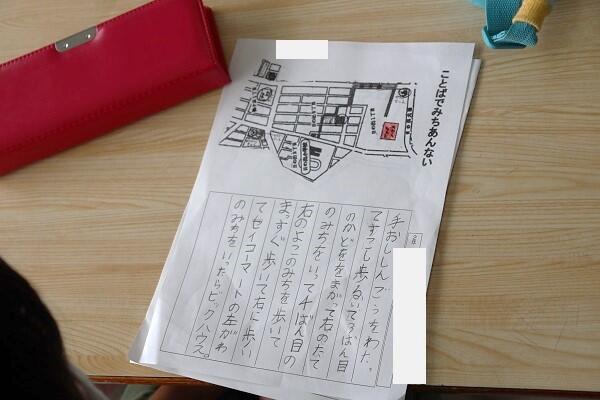 ことばでみちあんない
手おししんごうをわた
てすこし歩るいて3ばん目
のかどををまがって右のたて
のみちをいって4ばん目の
右のよこのみちを歩いて
まっすぐ歩いて右に歩い
てセイコーマートの左がわ
のみちをいったらビックハウス。